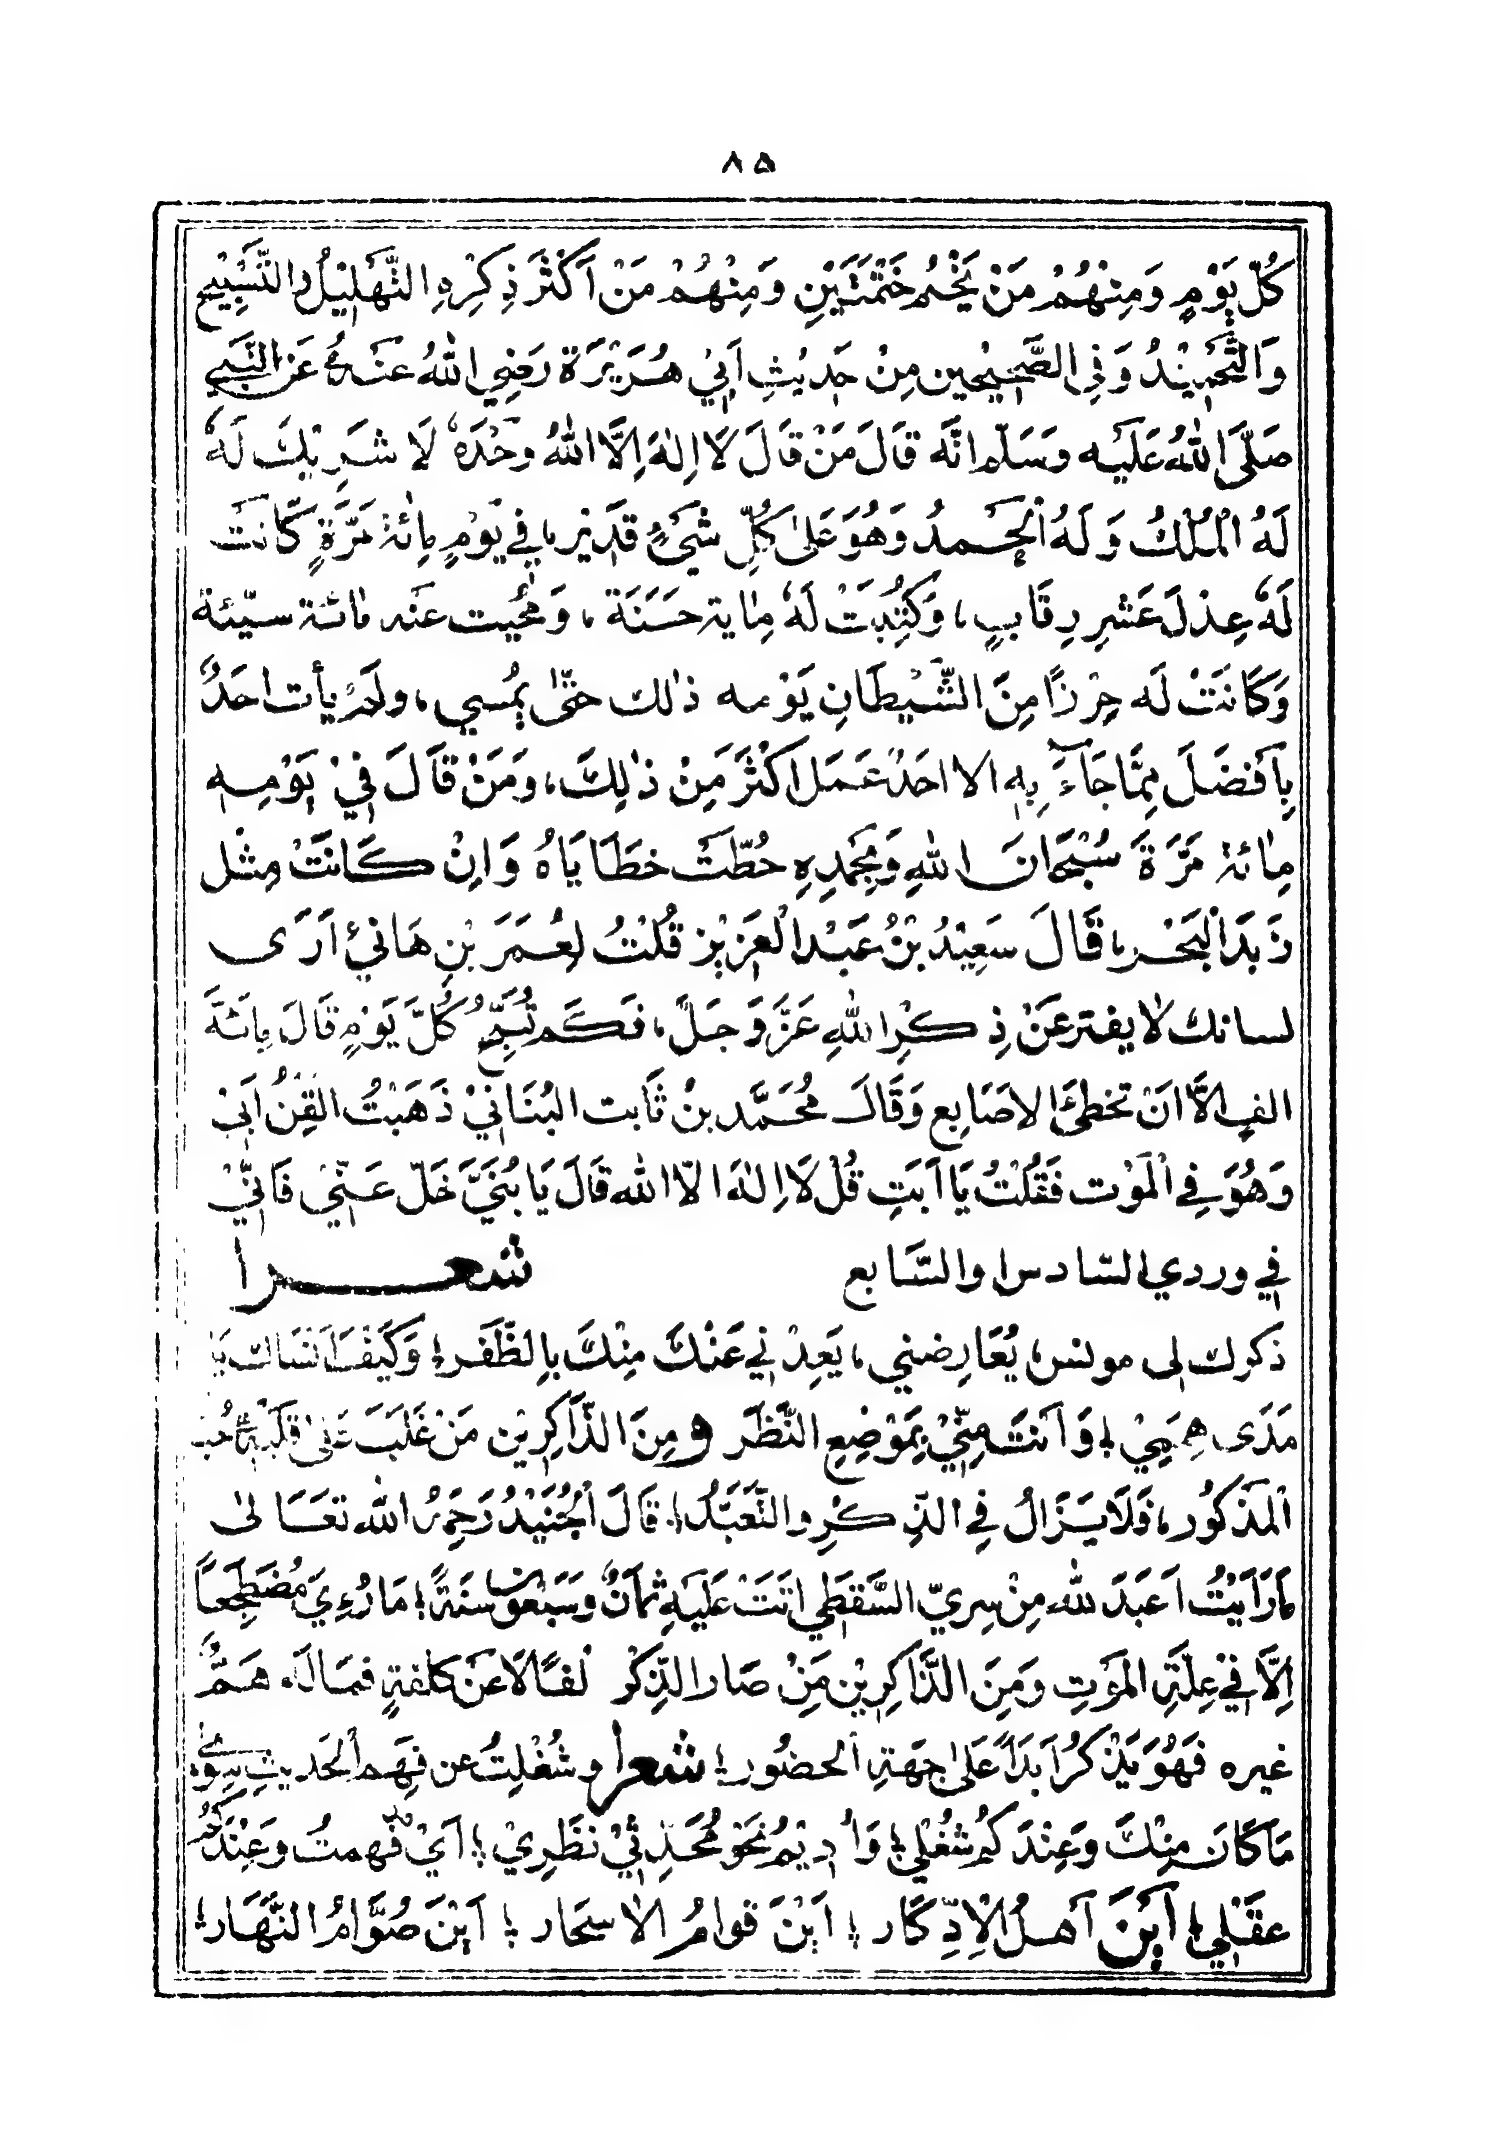 ٨٥
كُلَّ يَوْمٍ وَمِنْهُمْ مَنْ يَخْتُمُ خَتْمَتَيْنِ وَمِنْهُمْ مَنْ اَكْثَرَ ذِكْرِهِ التَّهْلِيْلُ والتَّسْبِيْحُ
وَالتَّحْمِيْدُ وَفِى الصَّحِيْحِين مِنْ حَدِيْثِ اَبِيْ هُرَيْرَةَ رَضِيَ اللهُ عَنْهُ عَنِ النَّبِي
صَلَّى اللهُ عَلَيْهِ وَسَلَّم انَّه قَالَ مَنْ قَالَ لَا اِلٰهَ اِلَّا اللهُ وحْدَهٗ لَا شَرِيْكَ لَهٗ
لَهُ الْمُلْكُ وَلَهُ الْحَمدُ وَهُوَ عَلىٰ كُلِّ شَيْءٍ قَدِيْر، فِي يَوْمٍ مِائةَ مَرَّةٍ كَانَت
لَهٗ عِدْلَ عَشْرِ رِقَابٍ، وَكُتِبَتْ لَهٗ مِایة حَسَنَة، وَمُحُيت عنه مائة سيّئة
وَكَانَتْ لَه حِرْزًا مِنَ الشَّيْطَانِ يَوْمه ذٰلك حَتّٰى يُمْسي، ولَمْ يأت احَدٌ
بِأَفضَلَ مِمَّا جَآءَ بِهِ الا احَدٌ عَمَل اكْثَرَ مِنْ ذٰلِكَ، وَمَنْ قَالَ فِيْ يَوْمِهِ
مِائة مَرَّةَ سُبْحَانَ اللهِ وَبِحَمْدِهِ حُطَّتْ خطَايَاهُ وَاِنْ كَانَتْ مِثْل
زَبَدَ الْبَحْرِ، قَالَ سَعِيْدُ بْنُ عَبْد الْعَزِيْز قُلْتُ لعُمَرَ بْنِ هَانِيْ اَرَى
لسانك لا يفتر عَنْ ذِكْرِ اللهِ عَزَّ وَجَلَّ، فَكَم تُسَبِّحُ كُلَّ يَوْمٍ قَالَ مِائَةَ
الفٍ الَّا انْ تخطئ الاصَابِع وَقَالَ مُحَمَّد بنُ ثَابت البُنَانِيْ ذَهَبْتُ القِّنُ اَبِيْ
وَهُوَ فِي الْمَوْت فَقُلْتُ يَا اَبَتِ قُلْ لَا اِلٰهَ الّا الله قَالَ يَا بُنَيَّ خَلِّ عَنّيْ فَانِّيْ
فِي وردي السّادس والسَّابع شعرا
ذكرك لى مونس، يُعَارِضني، يَعِدْنِي عَنْكَ مِنْكَ بالظَّفَر؛ وَكَيْفَ اَنْسَاكَ يَا
مَدَى هِمَمِيْ؛ وَاَنْتَ مِنِّيْ بِمَوْضِعِ النَّظَر و مِنَ الذَّاكِرِيْن مَنْ غَلَبَ عَلىٰ قَلْبِهِ حُبُّ
الْمَذْكُور، فَلَا يَزَالُ فِي الذِّكْرِ والتَّعَبُّد؛ قَالَ الْجُنَيْدُ رَحِمَهُ الله تعَالىٰ
مَا رَاَيْتُ اَعبَدَ لله مِنْ سِريّ السَّقطِي اتَتْ عَلَيْهِ ثمَانٌ وَسَبْعُونَ سَنَةً؛ مَا رُءِيَ مُضطَجِعاً
اِلَّا فِيْ عِلّةِ الْمَوْتِ وَمِنَ الذَّاكِرِيْن مَنْ صَار الذِّكْر لفًا لَا عَن كلفةٍ فمَالَه هَمٌّ
غيره فَهُوَ يَذْكُرُ اَبَدًا عَلىٰ جِهَةِ الحضُور؛ شعرا وشُغْلِتُ عن فِهَم الْحَديثِ سِوىٰ
مَا كَانَ مِنْكَ وَعِنْدَكُمْ شُغْلِي؛ وَاُدِيْمُ نَحْوَ مُحَدِّثِيْ نَظَرِيْ؛ اَيْ قَدْ فهمتُ وَعِنْدَكُمْ
عقَلِي؛ اَيْنَ اَهلُ الْاِدِّكَار؛ اَيْنَ قوامُ الاسحَار؛ اَيْنَ صُوَّامُ النَّهَار؛